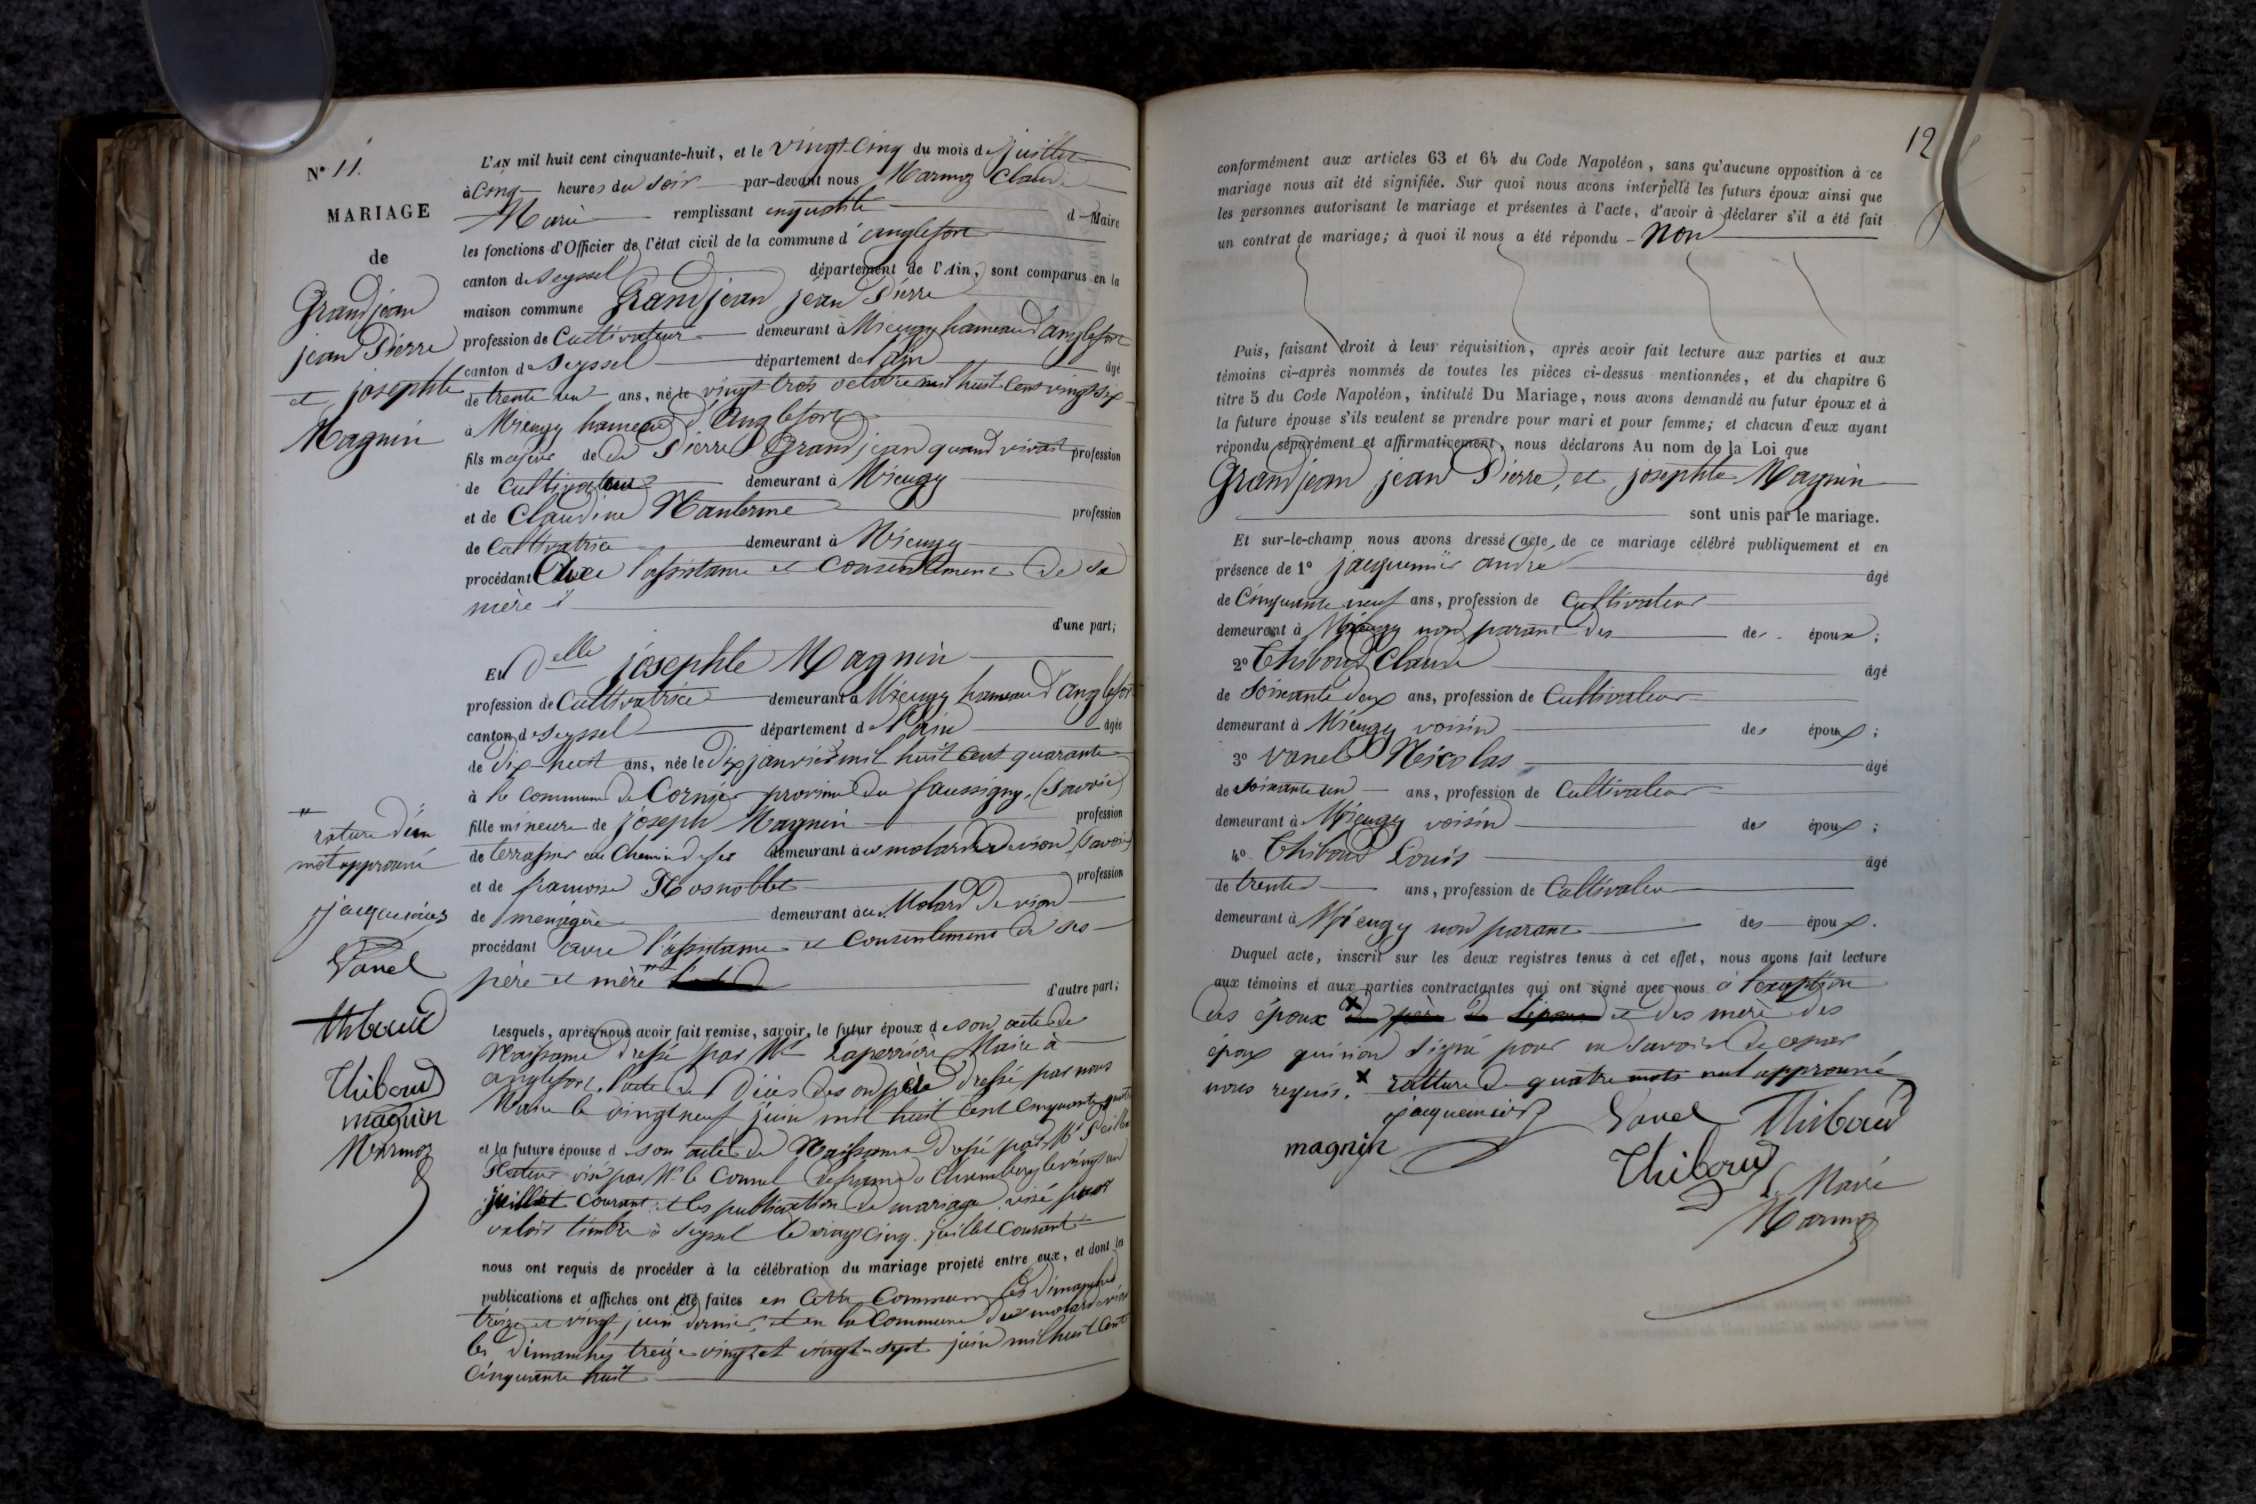 N° 11.
MARIAGE
de
Grandjean
jean Pierre
et josephte
Magnin
L'AN mil huit cent cinquante-huit, et le vingt-cinq du mois de juillet
à cinq heures du soir par-devant nous Marmoz Claude
Marie remplissant en qualité d Maire
les fonctions d'Officier de l'état civil de la commune d'anglefort
canton de Seyssel département de l'Ain, sont comparus en la
maison commune Grandjean jean Pierre
profession de Cultivateur demeurant à Mieugy hameau d'anglefort
canton de Seyssel département de l'ain âgé
de trente un ans, né le vingt trois octobre mil huit cent vingt six
à Mieugy hameau d'anglefort
fils majeur de de Pierre Grandjean quand vivait profession
de Cultivateur demeurant à Mieugy
et de Claudine Nanterme profession
de Cultivatrice demeurant à Mieugy
procédant avec l'assistance et consentement de sa
mère
d'une part;
Et Delle josephte Magnin
profession de Cultivatrice demeurant à Mieugy hameau d'anglefort
canton de Seyssel département de l'ain âgée
de dix-huit ans, née le dix janvier mil huit cent quarante
à la commune de Cornier province du faussigny, (Savoie)
fille mineure de Joseph Magnin profession
de terrassier au chemin de fer demeurant au molard de vion (Savoie)
et de francoise profession
de menagère demeurant au Molard de vion
procédant avec l'assistance et consentement de ses
père et mère
d'autre part;
rature d'un
mot approuvé
jacquemier
Vanel
thiboud
Thiboud
magnin
Marmoz
Lesquels, après nous avoir fait remise, savoir, le futur époux de son acte de
Naissance dressé par Mr Laperrière Maire à
anglefort, l'acte de Décès de son père dressé par nous
Maire le vingt neuf juin mil huit cent cinquante quatre
et la future épouse d son acte de Naissance dressé par Mr
Recteur visé par Mr le Consul de france à Chambery le vingt un
juillet courant et les publication de mariage visé pour
valoir timbre à Seyssel le vingt cinq juillet courant
nous ont requis de procéder à la célébration du mariage projeté entre eux, et dont les
publications et affiches ont été faites en cette commune les dimanches
treize et vingt juin dernier, et en la commune du molard de vion
les dimanches treize vingt et vingt-sept juin mil huit cent
cinquante huit
12
conformément aux articles 63 et 64 du Code Napoléon, sans qu'aucune opposition à ce
mariage nous ait été signifiée. Sur quoi nous avons interpellé les futurs époux ainsi que
les personnes autorisant le mariage et présentes à l'acte, d'avoir à déclarer s'il a été fait
un contrat de mariage; à quoi il nous a été répondu Non
Puis, faisant droit à leur réquisition, après avoir fait lecture aux parties et aux
témoins ci-après nommés de toutes les pièces ci-dessus mentionnées, et du chapitre 6
titre 5 du Code Napoléon, intitulé Du Mariage, nous avons demandé au futur époux et à
la future épouse s'ils veulent se prendre pour mari et pour femme; et chacun d'eux ayant
répondu séparément et affirmativement, nous déclarons Au nom de la Loi que
Grandjean jean Pierre, et josephte Magnin
sont unis par le mariage.
Et sur-le-champ nous avons dressé acte de ce mariage célébré publiquement et en
présence de 1° jacquemier andré âgé
de Cinquante neuf ans, profession de Cultivateur
demeurant à Mieugy non parant des des époux;
2° Thiboud Claude âgé
de soixante deux ans, profession de Cultivateur
demeurant à Mieugy voisin des époux;
3° vanel Nicolas âgé
de soixante un ans, profession de Cultivateur
demeurant à Mieugy voisin des époux;
4° Thiboud Louis âgé
de trente ans, profession de Cultivateur
demeurant à Mieugy non parant des époux.
Duquel acte, inscrit sur les deux registres tenus à cet effet, nous avons fait lecture
aux témoins et aux parties contractantes qui ont signé avec nous à l'exception
des époux x du père de l'épouse et des mère des
époux qui n'ont signé pour ne savoir de ce par
nous requis. x rature de quatre mots nul approuvé
jacquemier Vanel Thiboud
magnin Thiboud
Le Maire
Marmoz